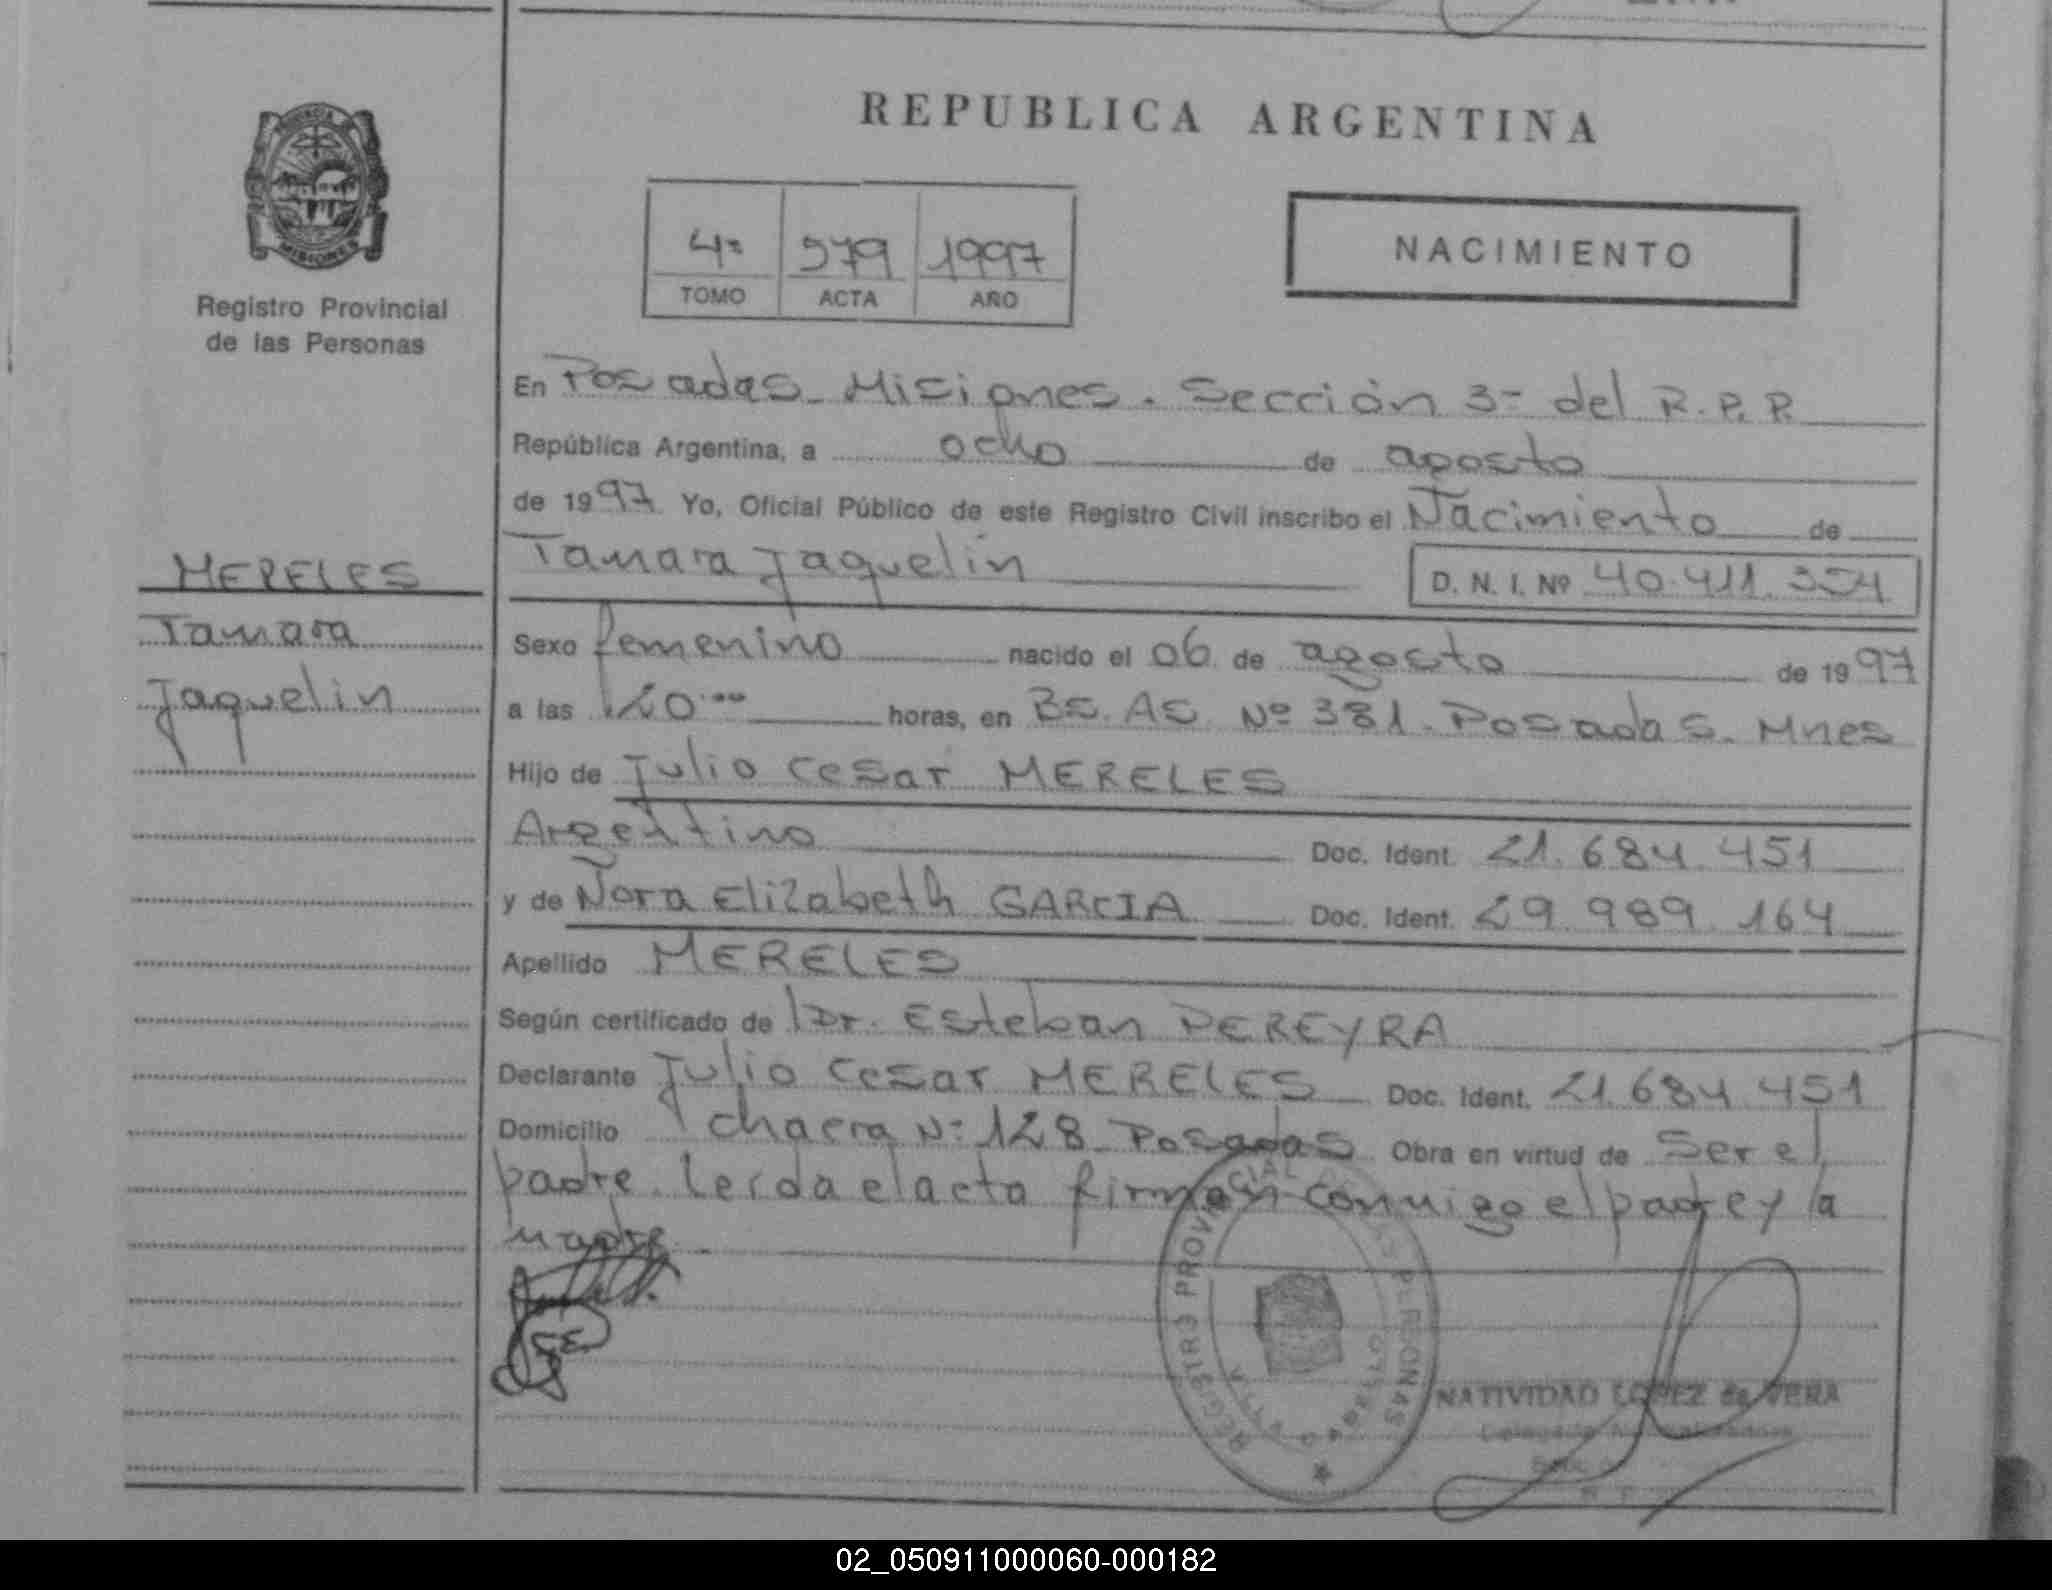 REPUBLICA ARGENTINA
PROVINCIA DE
MISIONES
Registro Provincial
de las Personas
4º 579 1997
TOMO ACTA AÑO
NACIMIENTO
En Posadas - Misiones. Sección 3º del R.P.P.
República Argentina, a ocho de agosto
de 1997 Yo, Oficial Público de este Registro Civil inscribo el Nacimiento de
Tamara Jaquelin D. N. I. Nº 40.411.354
MERELES
Tamara
Jaquelin
Sexo femenino nacido el 06 de agosto de 1997
a las 20:00 horas, en BS. AS. Nº 381. Posadas. Mnes
Hijo de Julio Cesar MERELES
Argentino Doc. Ident. 21.684.451
y de Ñora Elizabeth GARCIA Doc. Ident. 29.989.164
Apellido MERELES
Según certificado de Dr. Esteban PEREYRA
Declarante Julio Cesar MERELES Doc. Ident. 21.684.451
Domicilio chacra Nº 128 Posadas Obra en virtud de Ser el
padre. Leída el acta firman conmigo el padre y la
madre.
REGISTRO PROVINCIAL DE LAS PERSONAS
NATIVIDAD LOPEZ de VERA
02_050911000060-000182